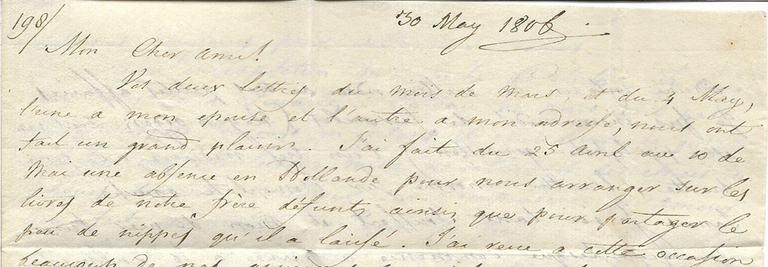 198/ 30 May 1806.
Mon Cher ami!
Vos deux lettres du mois de Mars, et du 4 May,
l'une a mon epouse et l'autre a mon adresse, nous ont
fait un grand plaisir. J'ai fait du 25 Avril au 10 de
Mai une absence en Hollande pour nous arranger sur les
livres de notre frère défunt, ainsi que pour partager le
peu de nippes qu'il a laissé. J'ai revu a cette occasion
beaucoup de nos